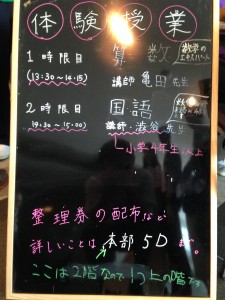 体験授業
1時限目 算数 数学のエキスパート
(13:30~14:15) 講師 亀田先生
2時限目 国語
(14:30~15:00) 講師・澁谷先生
小学4年生以上
整理券の配布など
詳しいことは本部5Dまで。
ここは2階なので1つ上の階です